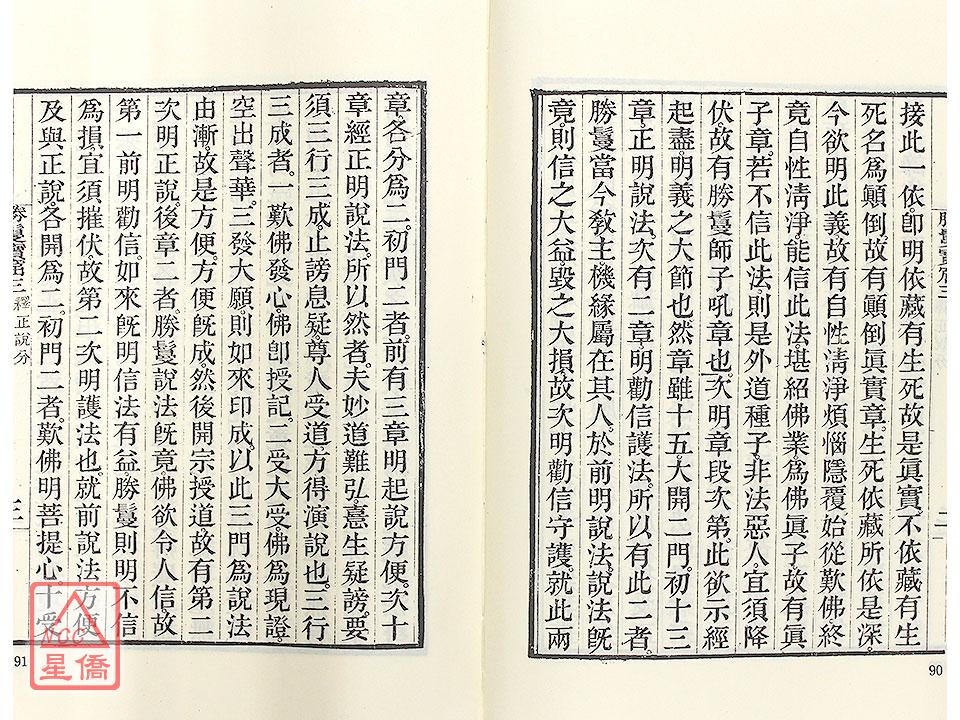 接此一依卽明依藏有生死故是眞實不依藏有生
死名爲顚倒故有顚倒眞實章生死依藏所依是深
今欲明此義故有自性淸淨煩惱隱覆始從歎佛終
竟自性淸淨能信此法堪紹佛業爲佛眞子故有眞
子章若不信此法則是外道種子非法惡人宜須降
伏故有勝鬘師子吼章也次明章段次第此欲示經
起盡明義之大節也然章雖十五大開二門初十三
章正明說法次有二章明勸信護法所以有此二者
勝鬘當今敎主機緣屬在其人於前明說法說法旣
竟則信之大益毀之大損故次明勸信守護就此兩
90
章各分爲二初門二者前有三章明起說方便次十
章經正明說法所以然者夫妙道難弘憙生疑謗要
須三行三成止謗息疑尊人受道方得演說也三行
三成者一歎佛發心佛卽授記二受大受佛爲現證
空出聲華三發大願則如來印成以此三門爲說法
由漸故是方便方便旣成然後開宗授道故有第二
次明正說後章二者勝鬘說法旣竟佛欲令人信故
第一前明勸信如來旣明信法有益勝鬘則明不信
爲損宜須摧伏故第二次明護法也就前說法方便
及與正說各開爲二初門二者歎佛明菩提心十受
勝鬘寶窟三 釋正說分
三
91
NCC
星僑